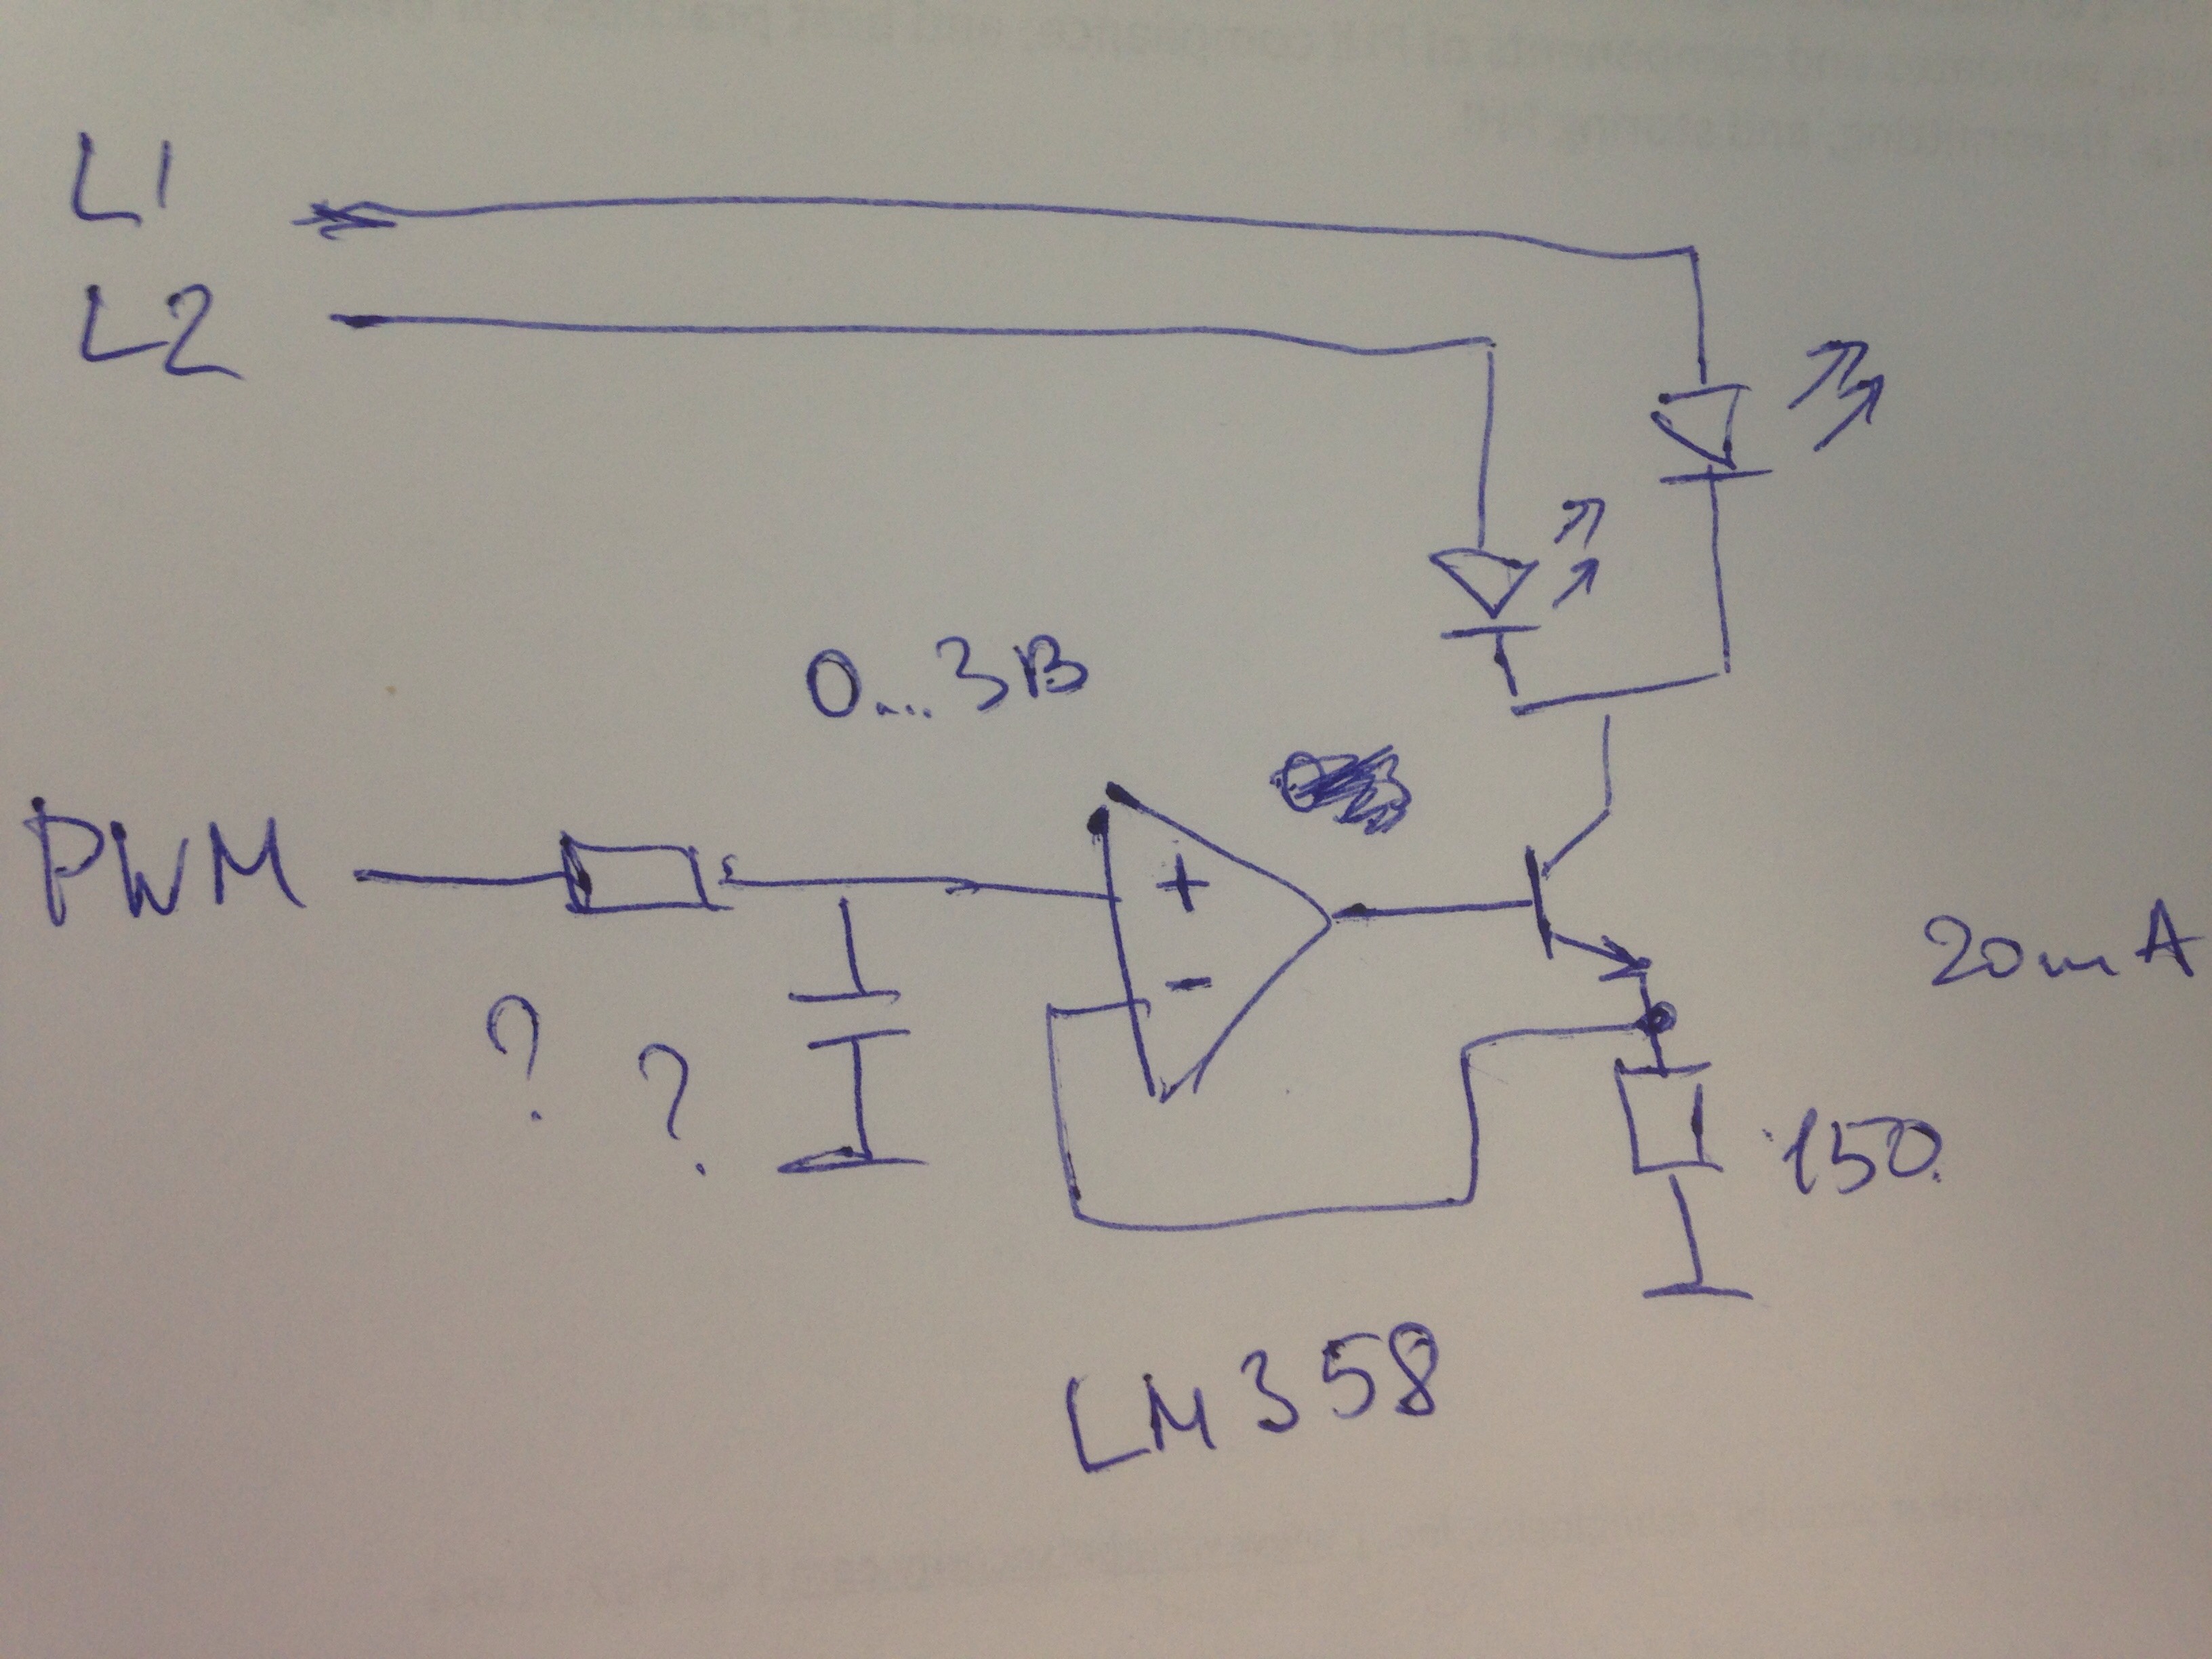 L1
L2
0...3В
PWM
+
-
20mA
?
?
150
LM358